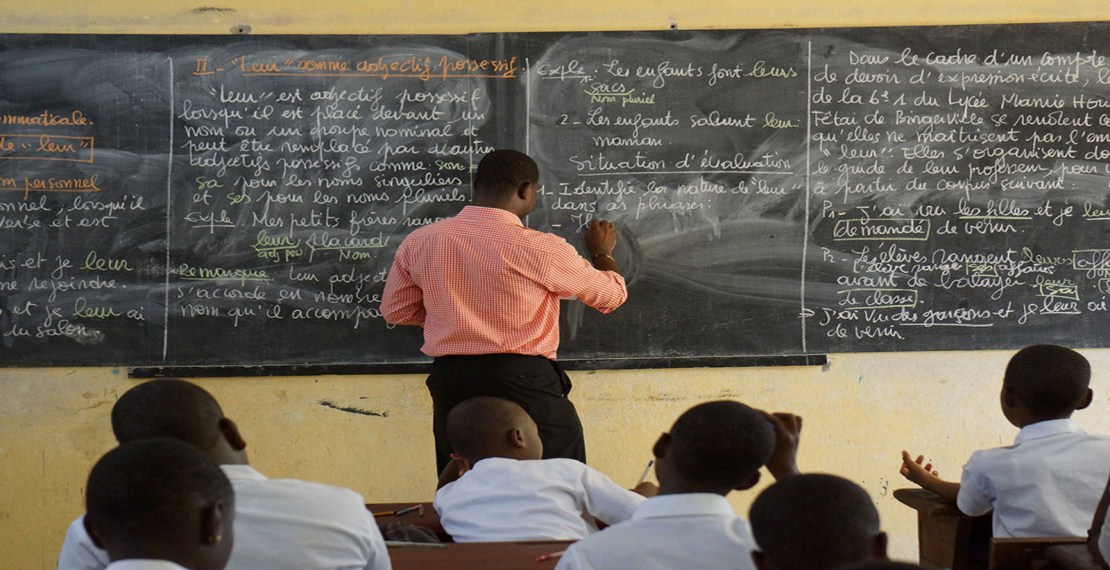 mmaticale.
le "leur"
m personnel
nnel, lorsqu'il
verbe et est
et je leur
me rejoindre.
et je leur ai
du salon.
II - "Leur" comme adjectif possessif.
"Leur" est adjectif possessif
lorsqu'il est placé devant un
nom ou un groupe nominal et
peut être remplacé par d'autres
adjectifs possessifs comme son
sa pour les noms singuliers
et ses pour les noms pluriels
Exple. Mes petits frères rangent
leur placard
adj poss Nom
Remarque Leur adjectif
s'accorde en nombre
nom qu'il accompa
Exple 1- Les enfants font leurs
sacs
Nom pluriel
2- Les enfants saluent leur
maman.
Situation d'évaluation
1- Identifie la nature de "leur"
dans ces phrases:
Dans le cadre d'un compte
de devoir d'expression écrite, l
de la 6e 1 du Lycée Mamie Hou
Fétai de Bingerville se rendent co
qu'elles ne maîtrisent pas l'em
"leur". Elles s'organisent do
le guide de leur professeur, pour
à partir du corpus suivant:
P1- J'ai vu les filles et je leur
demandé de venir.
P2- Les élèves rangent leurs affa
L'élève range ses affaires
avant de balayer leur sa
de classe
⇒ J'ai vu des garçons et je leur ai
de venir.